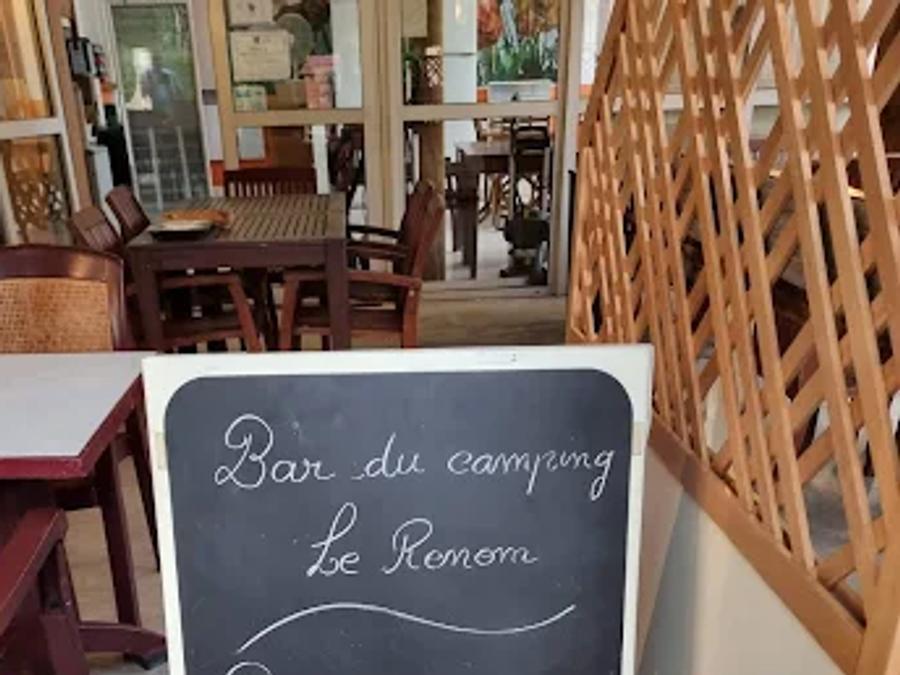 Bar du camping
Le Renom